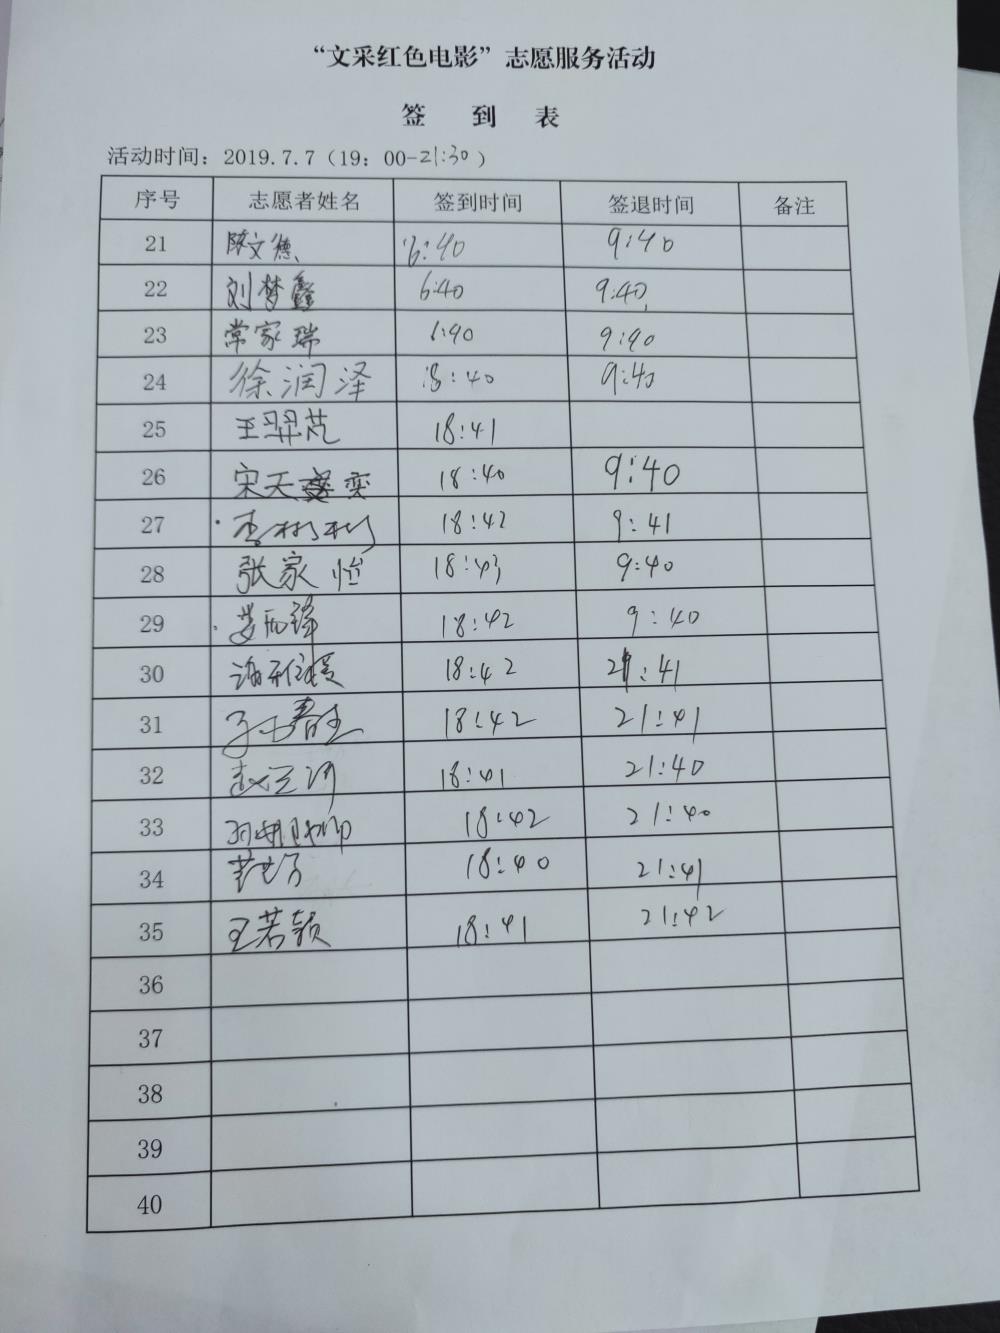 “文采红色电影”志愿服务活动
签 到 表
活动时间：2019.7.7（19：00-21:30）
序号 志愿者姓名 签到时间 签退时间 备注
21 陈文德 6:40 9:40
22 刘梦鑫 6:40 9:40
23 常家瑞 6:40 9:40
24 徐润泽 18:40 9:40
25 王羿芃 18:41
26 宋天奕 18:40 9:40
27 李彬彬 18:42 9:41
28 张家怡 18:43 9:40
29 18:42 9:40
30 18:42 21:41
31 18:42 21:41
32 18:41 21:40
33 18:42 21:40
34 18:40 21:41
35 王若颖 18:41 21:42
36
37
38
39
40